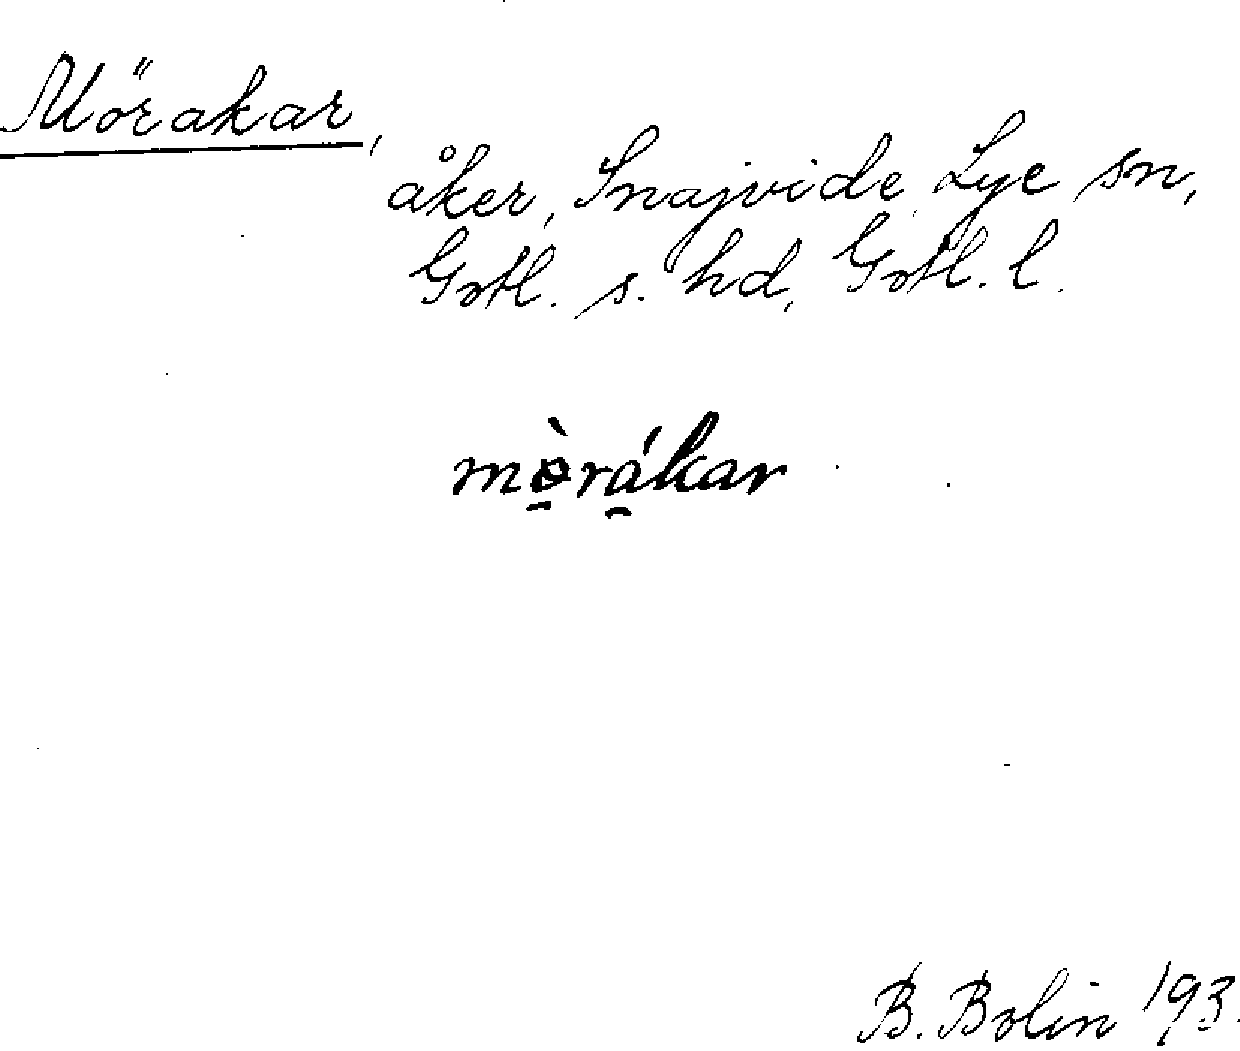 Mörakar,
åker, Snajvide, Lye sn,
Gotl. s. hd, Gotl. l.
mə̱̀rá̱kar
B. Bolin 193